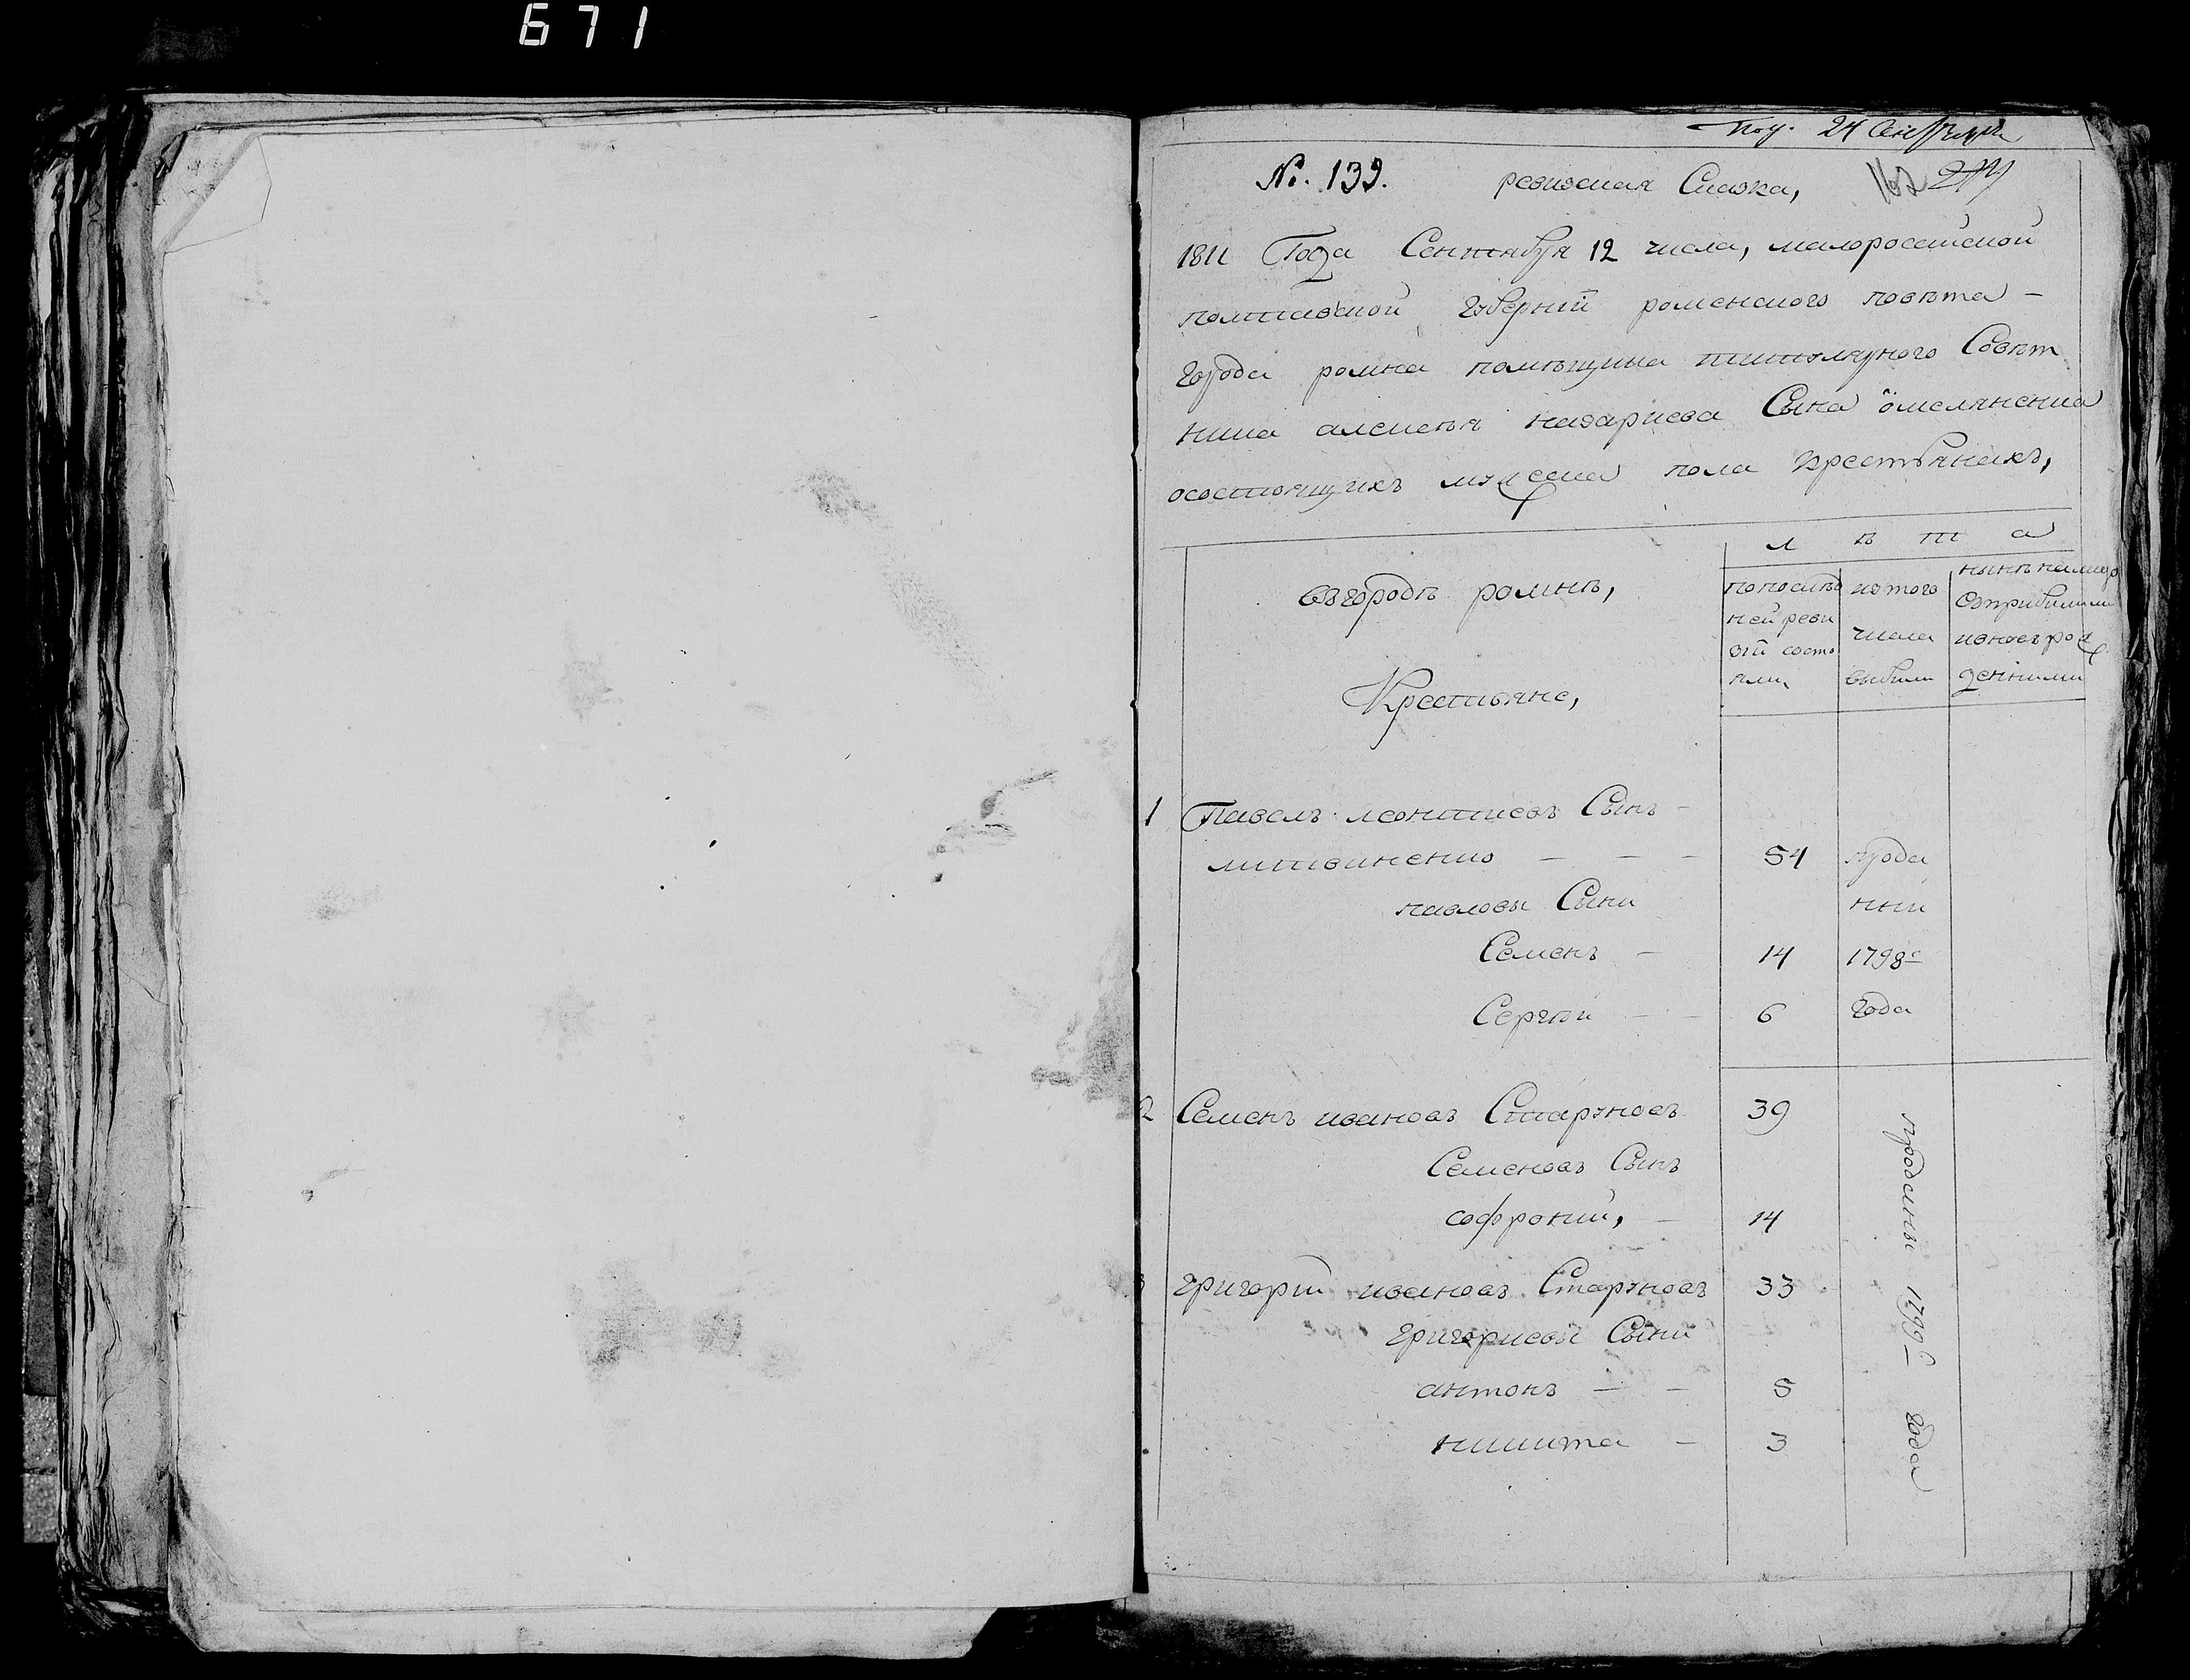 671
Пол. 24 Сентября
№. 139. ревизская Сказка, 162 274
1811 Года Сентября 12 числа, малоросийской
полтавской губернии роменского повѣта -
города ромна помѣщика титулярного Совѣт
ника алексѣя назариева Сына омеляненка
осостоящихъ мужеска пола крестьянахъ,
лѣта
въгородѣ ромнѣ,
Крестьяне,
попослѣд
ней реви
зіи состо
яли,
изтого
числа
выбыли
нынѣ налицо
съприбилими
ивновьрож
денними
1 Павелъ леонтиевъ Сынъ -
литвиненко - - - 54 прода
павловы Сыни нии
Семенъ - 14 1798г
Сергѣй - - 6 года
2 Семенъ ивановъ Старуновъ 39
Семеновъ Сынъ
софроний, - 14
3 григорий ивановъ Старуновъ 33
григориевы Сыни
антонъ - - 5
никита - 3
проданы 1799г года